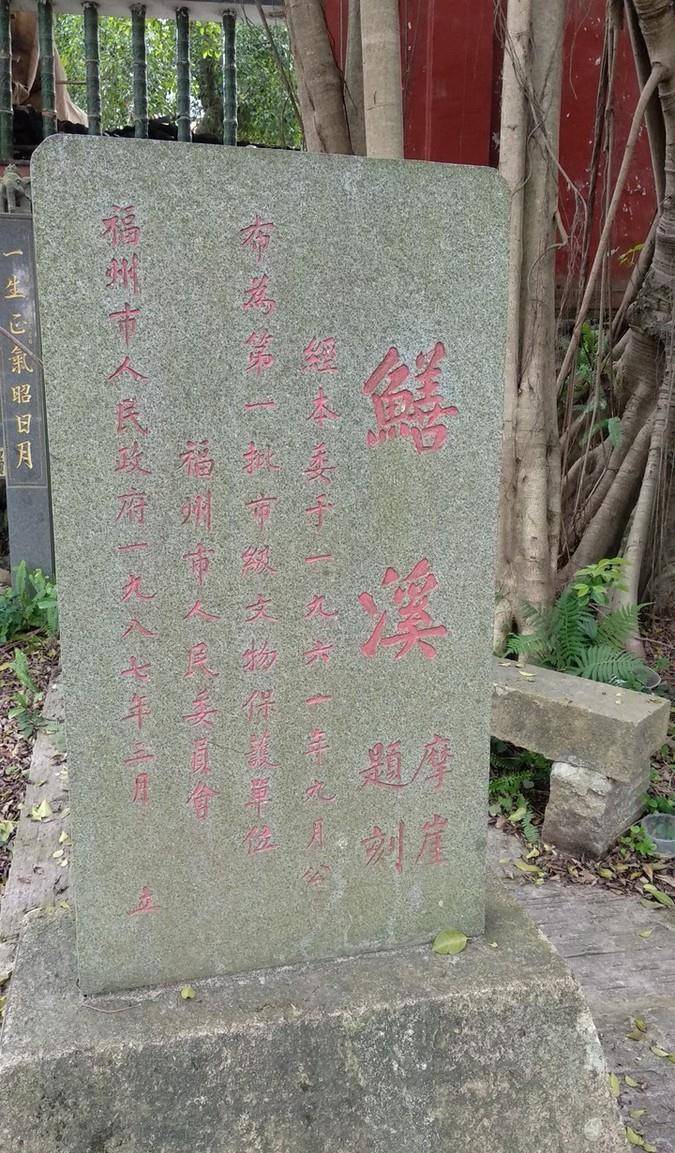 鱔溪
摩崖
題刻
經本委于一九六一年九月公
布為第一批市級文物保護單位
福州市人民委員會
福州市人民政府一九八七年三月 立
一生正氣昭日月